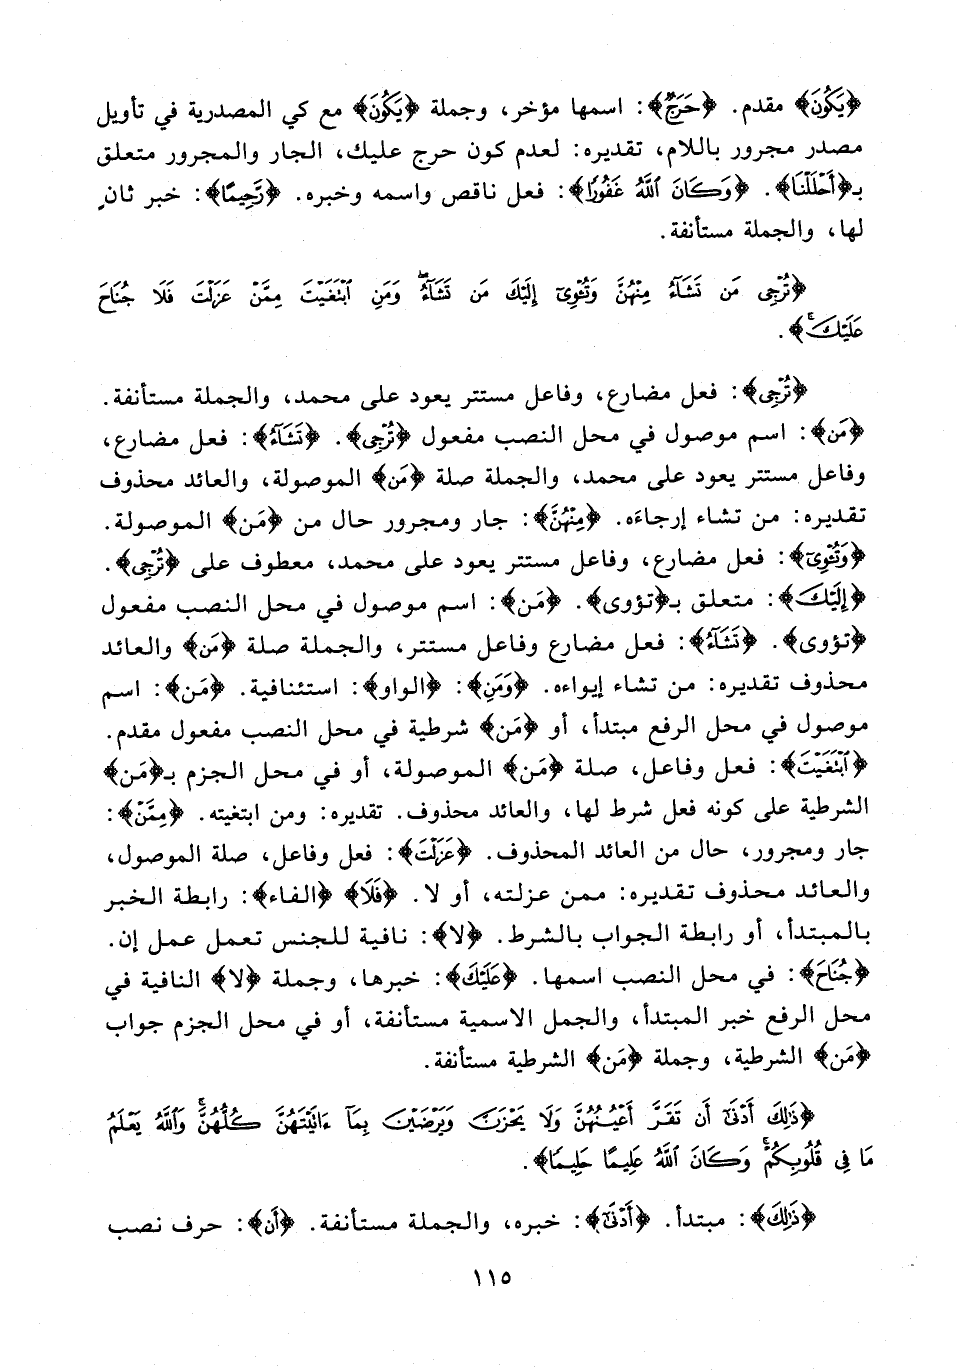 ﴿يَكُونَ﴾ مقدم. ﴿حَرَجٌ﴾: اسمها مؤخر، وجملة ﴿يَكُونَ﴾ مع كي المصدرية في تأويل
مصدر مجرور باللام، تقديره: لعدم كون حرج عليك، الجار والمجرور متعلق
بـ﴿أَحْلَلْنَا﴾. ﴿وَكَانَ ٱللَّهُ غَفُورًا﴾: فعل ناقص واسمه وخبره. ﴿رَّحِيمًا﴾: خبر ثانٍ
لها، والجملة مستأنفة.
﴿تُرْجِى مَن تَشَآءُ مِنْهُنَّ وَتُـْٔوِىٓ إِلَيْكَ مَن تَشَآءُ ۖ وَمَنِ ٱبْتَغَيْتَ مِمَّنْ عَزَلْتَ فَلَا جُنَاحَ
عَلَيْكَ ۚ﴾.
﴿تُرْجِى﴾: فعل مضارع، وفاعل مستتر يعود على محمد، والجملة مستأنفة.
﴿مَن﴾: اسم موصول في محل النصب مفعول ﴿تُرْجِى﴾. ﴿تَشَآءُ﴾: فعل مضارع،
وفاعل مستتر يعود على محمد، والجملة صلة ﴿مَن﴾ الموصولة، والعائد محذوف
تقديره: من تشاء إرجاءَه. ﴿مِنْهُنَّ﴾: جار ومجرور حال من ﴿مَن﴾ الموصولة.
﴿وَتُـْٔوِىٓ﴾: فعل مضارع، وفاعل مستتر يعود على محمد، معطوف على ﴿تُرْجِى﴾.
﴿إِلَيْكَ﴾: متعلق بـ﴿تؤوى﴾. ﴿مَن﴾: اسم موصول في محل النصب مفعول
﴿تؤوى﴾. ﴿تَشَآءُ﴾: فعل مضارع وفاعل مستتر، والجملة صلة ﴿مَن﴾ والعائد
محذوف تقديره: من تشاء إيواءه. ﴿وَمَنِ﴾: ﴿الواو﴾: استئنافية. ﴿مَن﴾: اسم
موصول في محل الرفع مبتدأ، أو ﴿مَن﴾ شرطية في محل النصب مفعول مقدم.
﴿ٱبْتَغَيْتَ﴾: فعل وفاعل، صلة ﴿مَن﴾ الموصولة، أو في محل الجزم بـ﴿مَن﴾
الشرطية على كونه فعل شرط لها، والعائد محذوف. تقديره: ومن ابتغيته. ﴿مِمَّنْ﴾:
جار ومجرور، حال من العائد المحذوف. ﴿عَزَلْتَ﴾: فعل وفاعل، صلة الموصول،
والعائد محذوف تقديره: ممن عزلته، أو لا. ﴿فَلَا﴾ ﴿الفاء﴾: رابطة الخبر
بالمبتدأ، أو رابطة الجواب بالشرط. ﴿لا﴾: نافية للجنس تعمل عمل إن.
﴿جُنَاحَ﴾: في محل النصب اسمها. ﴿عَلَيْكَ﴾: خبرها، وجملة ﴿لا﴾ النافية في
محل الرفع خبر المبتدأ، والجمل الاسمية مستأنفة، أو في محل الجزم جواب
﴿مَن﴾ الشرطية، وجملة ﴿مَن﴾ الشرطية مستأنفة.
﴿ذَٰلِكَ أَدْنَىٰٓ أَن تَقَرَّ أَعْيُنُهُنَّ وَلَا يَحْزَنَّ وَيَرْضَيْنَ بِمَآ ءَاتَيْتَهُنَّ كُلُّهُنَّ ۚ وَٱللَّهُ يَعْلَمُ
مَا فِى قُلُوبِكُمْ ۚ وَكَانَ ٱللَّهُ عَلِيمًا حَلِيمًا﴾.
﴿ذَٰلِكَ﴾: مبتدأ. ﴿أَدْنَىٰٓ﴾: خبره، والجملة مستأنفة. ﴿أَن﴾: حرف نصب
١١٥